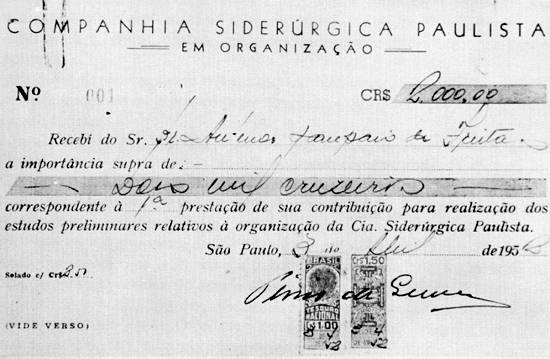 COMPANHIA SIDERÚRGICA PAULISTA
EM ORGANIZAÇÃO
Nº 001 CR$ 2.000,00
Recebi do Sr. Sampaio de Freitas
a importância supra de: -
Dois mil cruzeiros
correspondente à 1ª prestação de sua contribuição para realização dos
estudos preliminares relativos à organização da Cia. Siderúrgica Paulista.
São Paulo, 3 de Abril de 1952
Selado c/ Cr$ 2.50
BRASIL
TESOURO NACIONAL
CR$1.00
CR$1,50
(VIDE VERSO)